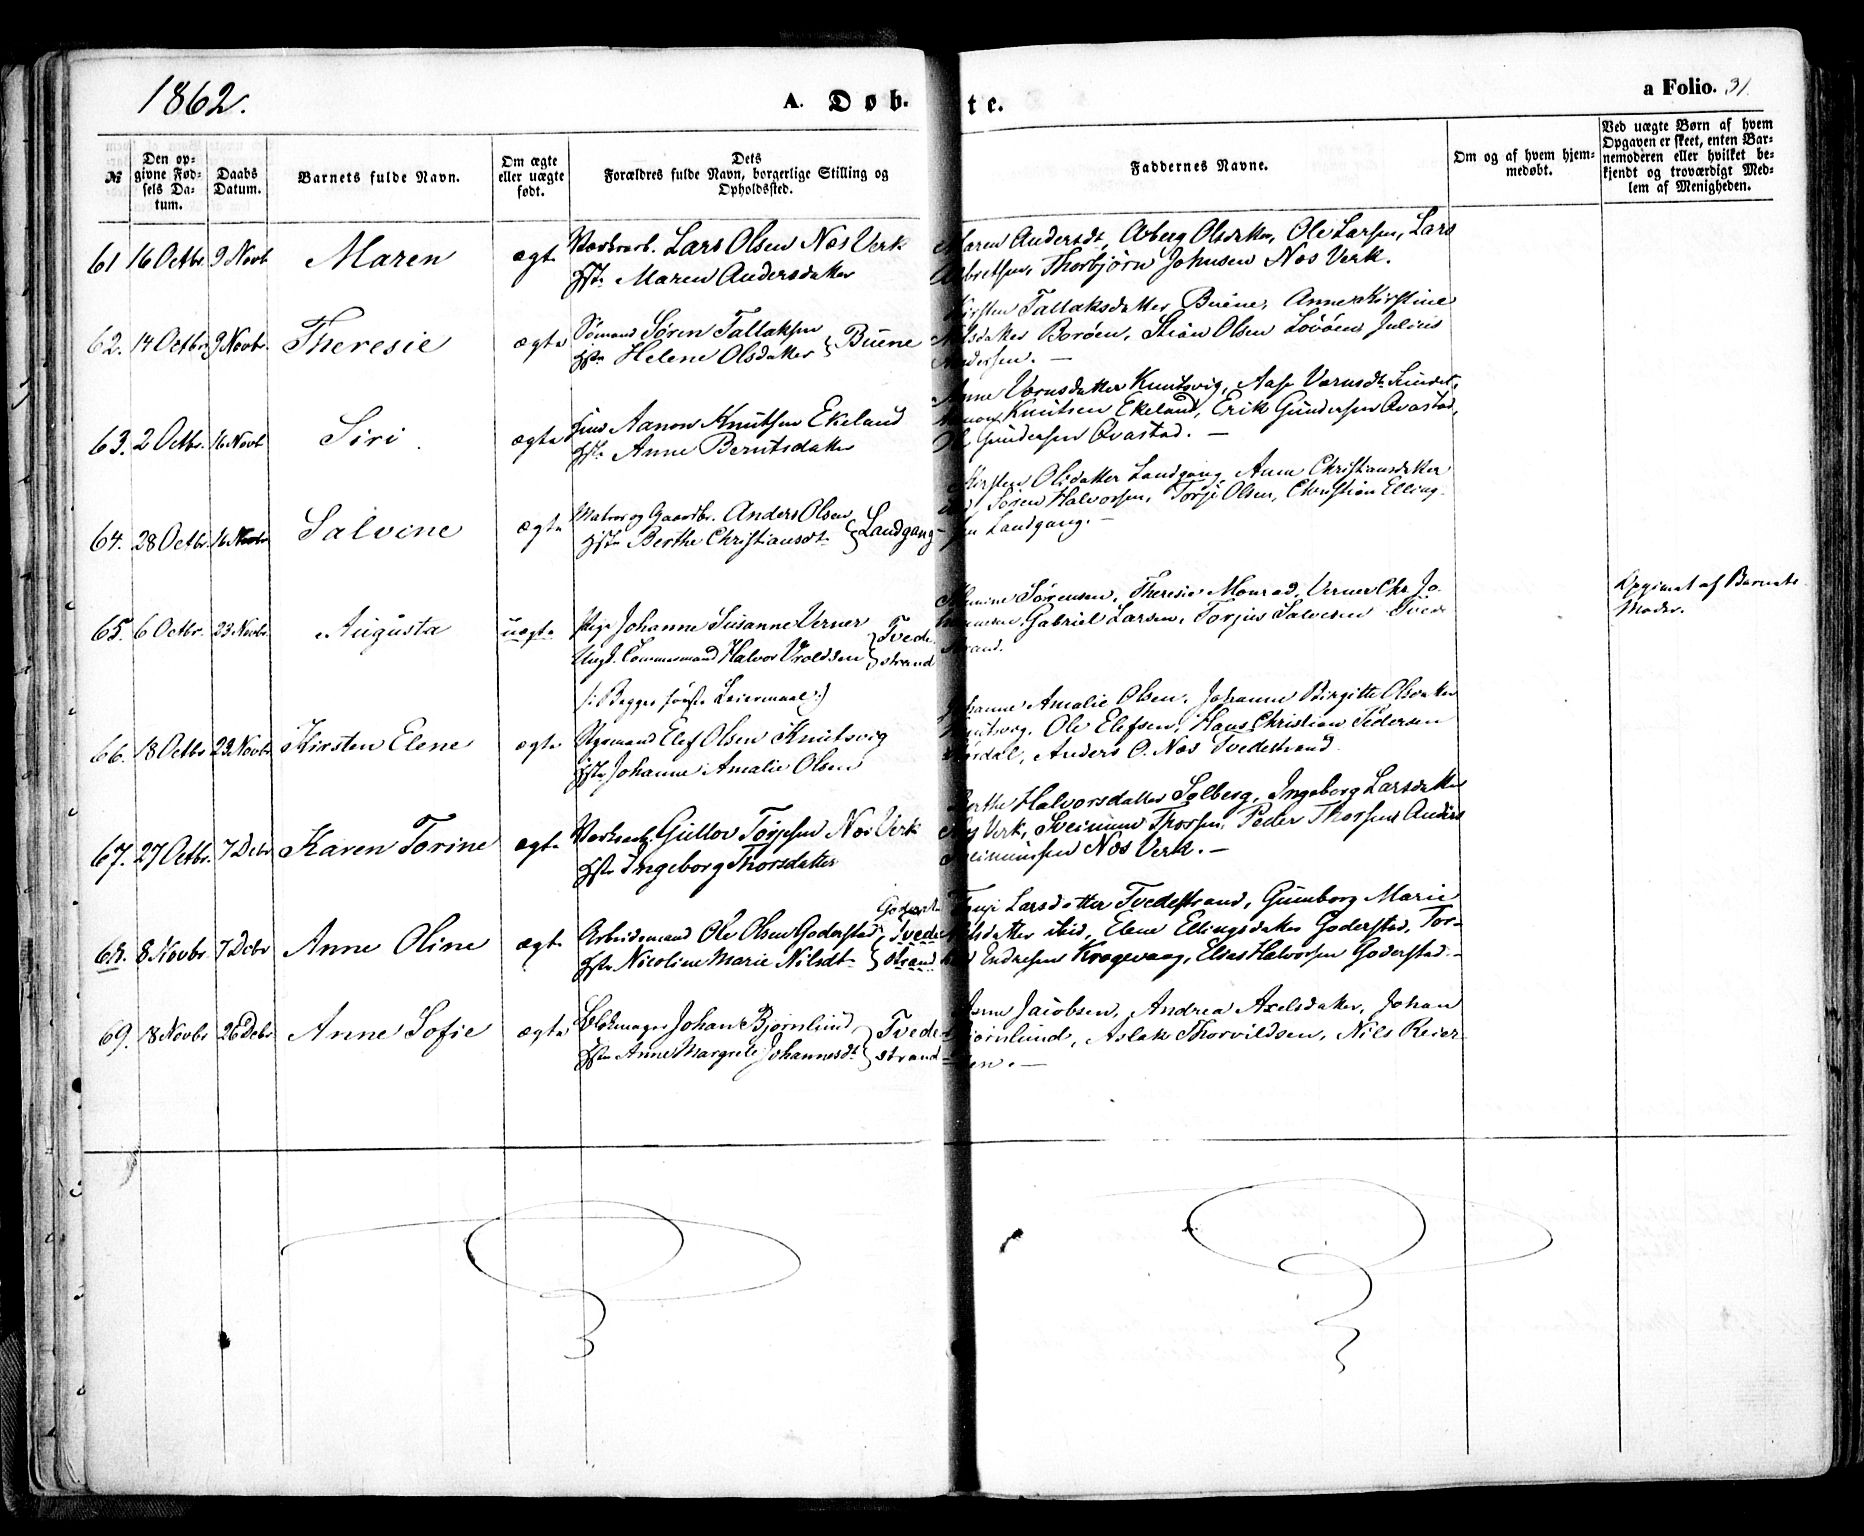 1862.
A. Døb-
te.
a Folio. 31.
№
Den op-
givne Fød-
sels Da-
tum.
Daabs
Datum.
Barnets fulde Navn.
Om ægte
eller uægte
født.
Dets
Forældres fulde Navn, borgerlige Stilling og
Opholdssted.
Faddernes Navne.
Om og af hvem hjem-
medøbt.
Ved uægte Børn af hvem
Opgaven er skeet, enten Bar-
nemoderen eller hvilket be-
kjendt og troværdigt Med-
lem af Menigheden.
61 16 Octbr 9 Novb Maren ægte Værksarb. Lars Olsen Næs Verk
Hstr Maren Andersdatter
Maren Andersdt, Olsdatter, Ole Larsen, Lars
Thorbjørn Johnsen Næs Verk.
62. 14 Octbr 9 Novbr. Theresie ægte Sømand Søren Tallaksen
Hstr Helene Olsdatter } Buene
Kirsten Tallaksdatter Buene, Anne Kirstine
Nilsdatter Borøen, Stian Olsen Lovøen Julius
Andersen. —
63. 2 Octbr. 16 Novb Siri. ægte Aanon Knutsen Ekeland
Hstr Anne Berntsdatter
Anne Knutsvig, Aase
Aanon Knutsen Ekeland, Erik Gundersen Qvastad,
Gundersen Qvastad. —
64. 28 Octbr. 16 Novbr Salvine ægte Matros og Gaardbr. Anders Olsen
Hstr Berthe Christiansdt } Landgang
Kirsten Olsdatter Landgang, Anne Christiansdatter
Søren Halvorsen, Torje Olsen, Christian Elling-
sen Landgang. —
65. 6 Octbr. 23 Novbr. Augusta uægte Pige Johanne Susanne Verner
Ungk. Halvor Vroldsen } Tvede-
strand
/: Begges første Leiermaal :/
Sørensen, Theresie Monrad, Verner Chr. Jo-
Gabriel Larsen, Torjus Salvesen Tvede-
strand.
Opgivet af Barnets
Moder.
66. 18 Octbr 23 Novbr Kirsten Elene ægte Elef Olsen Knutsvig
Hstr Johanne Amalie Olsen
Johanne Amalie Olsen, Johanne Birgitte Olsdatter
Knutsvig, Ole Elefsen, Hans Christian Pedersen
Anders O. Næs Tvedestrand.
67. 27 Octbr. 7 Debr Karen Torine ægte Værksarb. Gullov Torjesen Næs Verk
Hstr Ingeborg Thorsdatter
Berthe Halvorsdatter Solberg, Ingeborg Larsdatter
Næs Verk, Sveinung Thorsen, Peder Thorsen, Anders
Sveinunsen Næs Verk. —
68. 8 Novbr. 7 Debr Anne Oline ægte Arbeidsmand Ole Olsen Goderstad
Hstr Nicoline Marie Nilsdt } Tvede-
strand
Larsdatter Tvedestrand, Gunborg Marie
Nilsdatter ibid, Elene Ellingsdatter Goderstad, Tor-
Endresen Kragevaag, Elias Halvorsen Goderstad. —
69. 8 Novbr 26 Debr Anne Sofie ægte Blokmager Johan Bjørnlund
Hstr Anne Margrete Johannesdt } Tvede-
strand
Jacobsen, Andrea Axelsdatter, Johan
Bjørnlund, Aslak Thorvildsen, Nils Reier-
sen. —